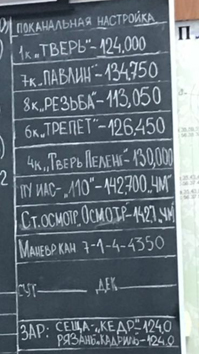 ПОКАНАЛЬНАЯ НАСТРОЙКА
1к „ТВЕРЬ"-124,000
7к „ПАВЛИН"-134,750
8к „РЕЗЬБА"-113,050
6к „ТРЕПЕТ"-126,450
4к „ТВЕРЬ ПЕЛЕНГ"-130,000
ПУ ИАС-"110"-142,700 „ЧМ"
СТ. ОСМОТР „ОСМОТР"-142,7 „ЧМ"
МАНЕВР КАН 7-1-4-4350
СУТ ДЕК
ЗАР: СЕЩА-„КЕДР"-124.0
РЯЗАНЬ-„КАДРИЛЬ"-124.0